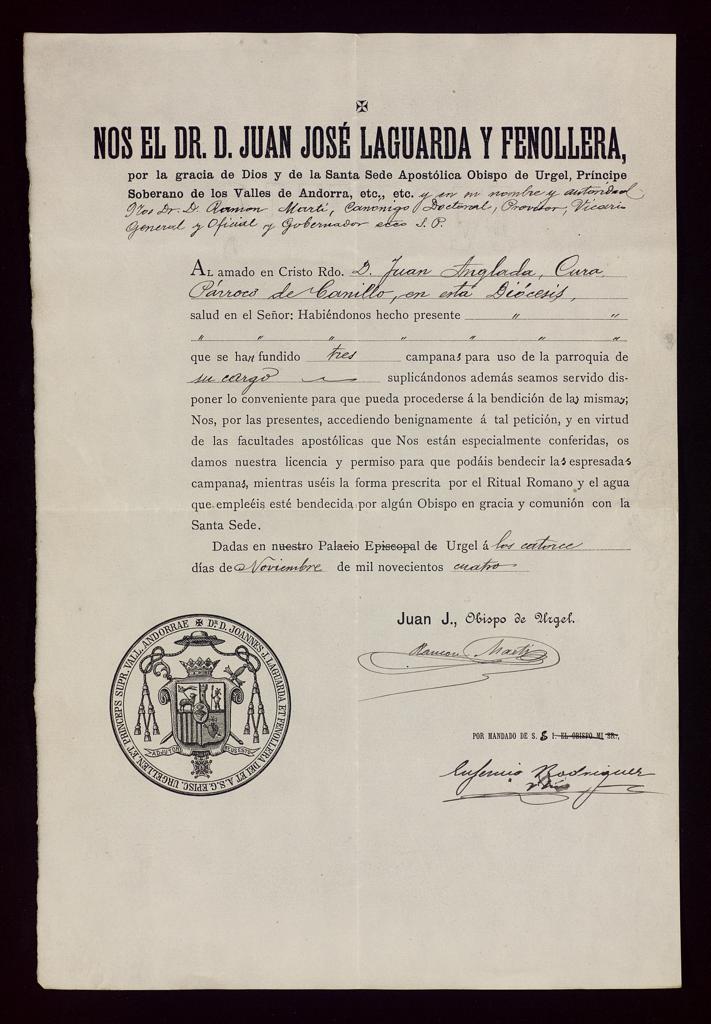 NOS EL DR. D. JUAN JOSÉ LAGUARDA Y FENOLLERA,
por la gracia de Dios y de la Santa Sede Apostólica Obispo de Urgel, Príncipe
Soberano de los Valles de Andorra, etc., etc. y en su nombre y autoridad
Nos Dr. D. Ramon Martí, Canonigo Doctoral, Provisor, Vicario
General y Oficial y Gobernador S. P.
AL amado en Cristo Rdo. D. Juan Anglada, Cura
Párroco de Canillo, en esta Diócesis,
salud en el Señor: Habiéndonos hecho presente " "
" " " " " " "
que se han fundido tres campanas para uso de la parroquia de
su cargo suplicándonos además seamos servido dis-
poner lo conveniente para que pueda procederse á la bendición de las mismas;
Nos, por las presentes, accediendo benignamente á tal petición, y en virtud
de las facultades apostólicas que Nos están especialmente conferidas, os
damos nuestra licencia y permiso para que podáis bendecir las espresadas
campanas, mientras uséis la forma prescrita por el Ritual Romano y el agua
que empleéis esté bendecida por algún Obispo en gracia y comunión con la
Santa Sede.
Dadas en nuestro Palacio Episcopal de Urgel á los catorce
días de Noviembre de mil novecientos cuatro
Juan J., Obispo de Urgel.
Ramon Martí
POR MANDADO DE S. S I. EL OBISPO MI SR.,
Eugenio Rodriguez
✠ Dr. D. JOANNES J. LAGUARDA ET FENOLLERA DEI ET A.S.G. EPISC. URGELLEN. ET PRINCEPS SUPR. VALL. ANDORRAE